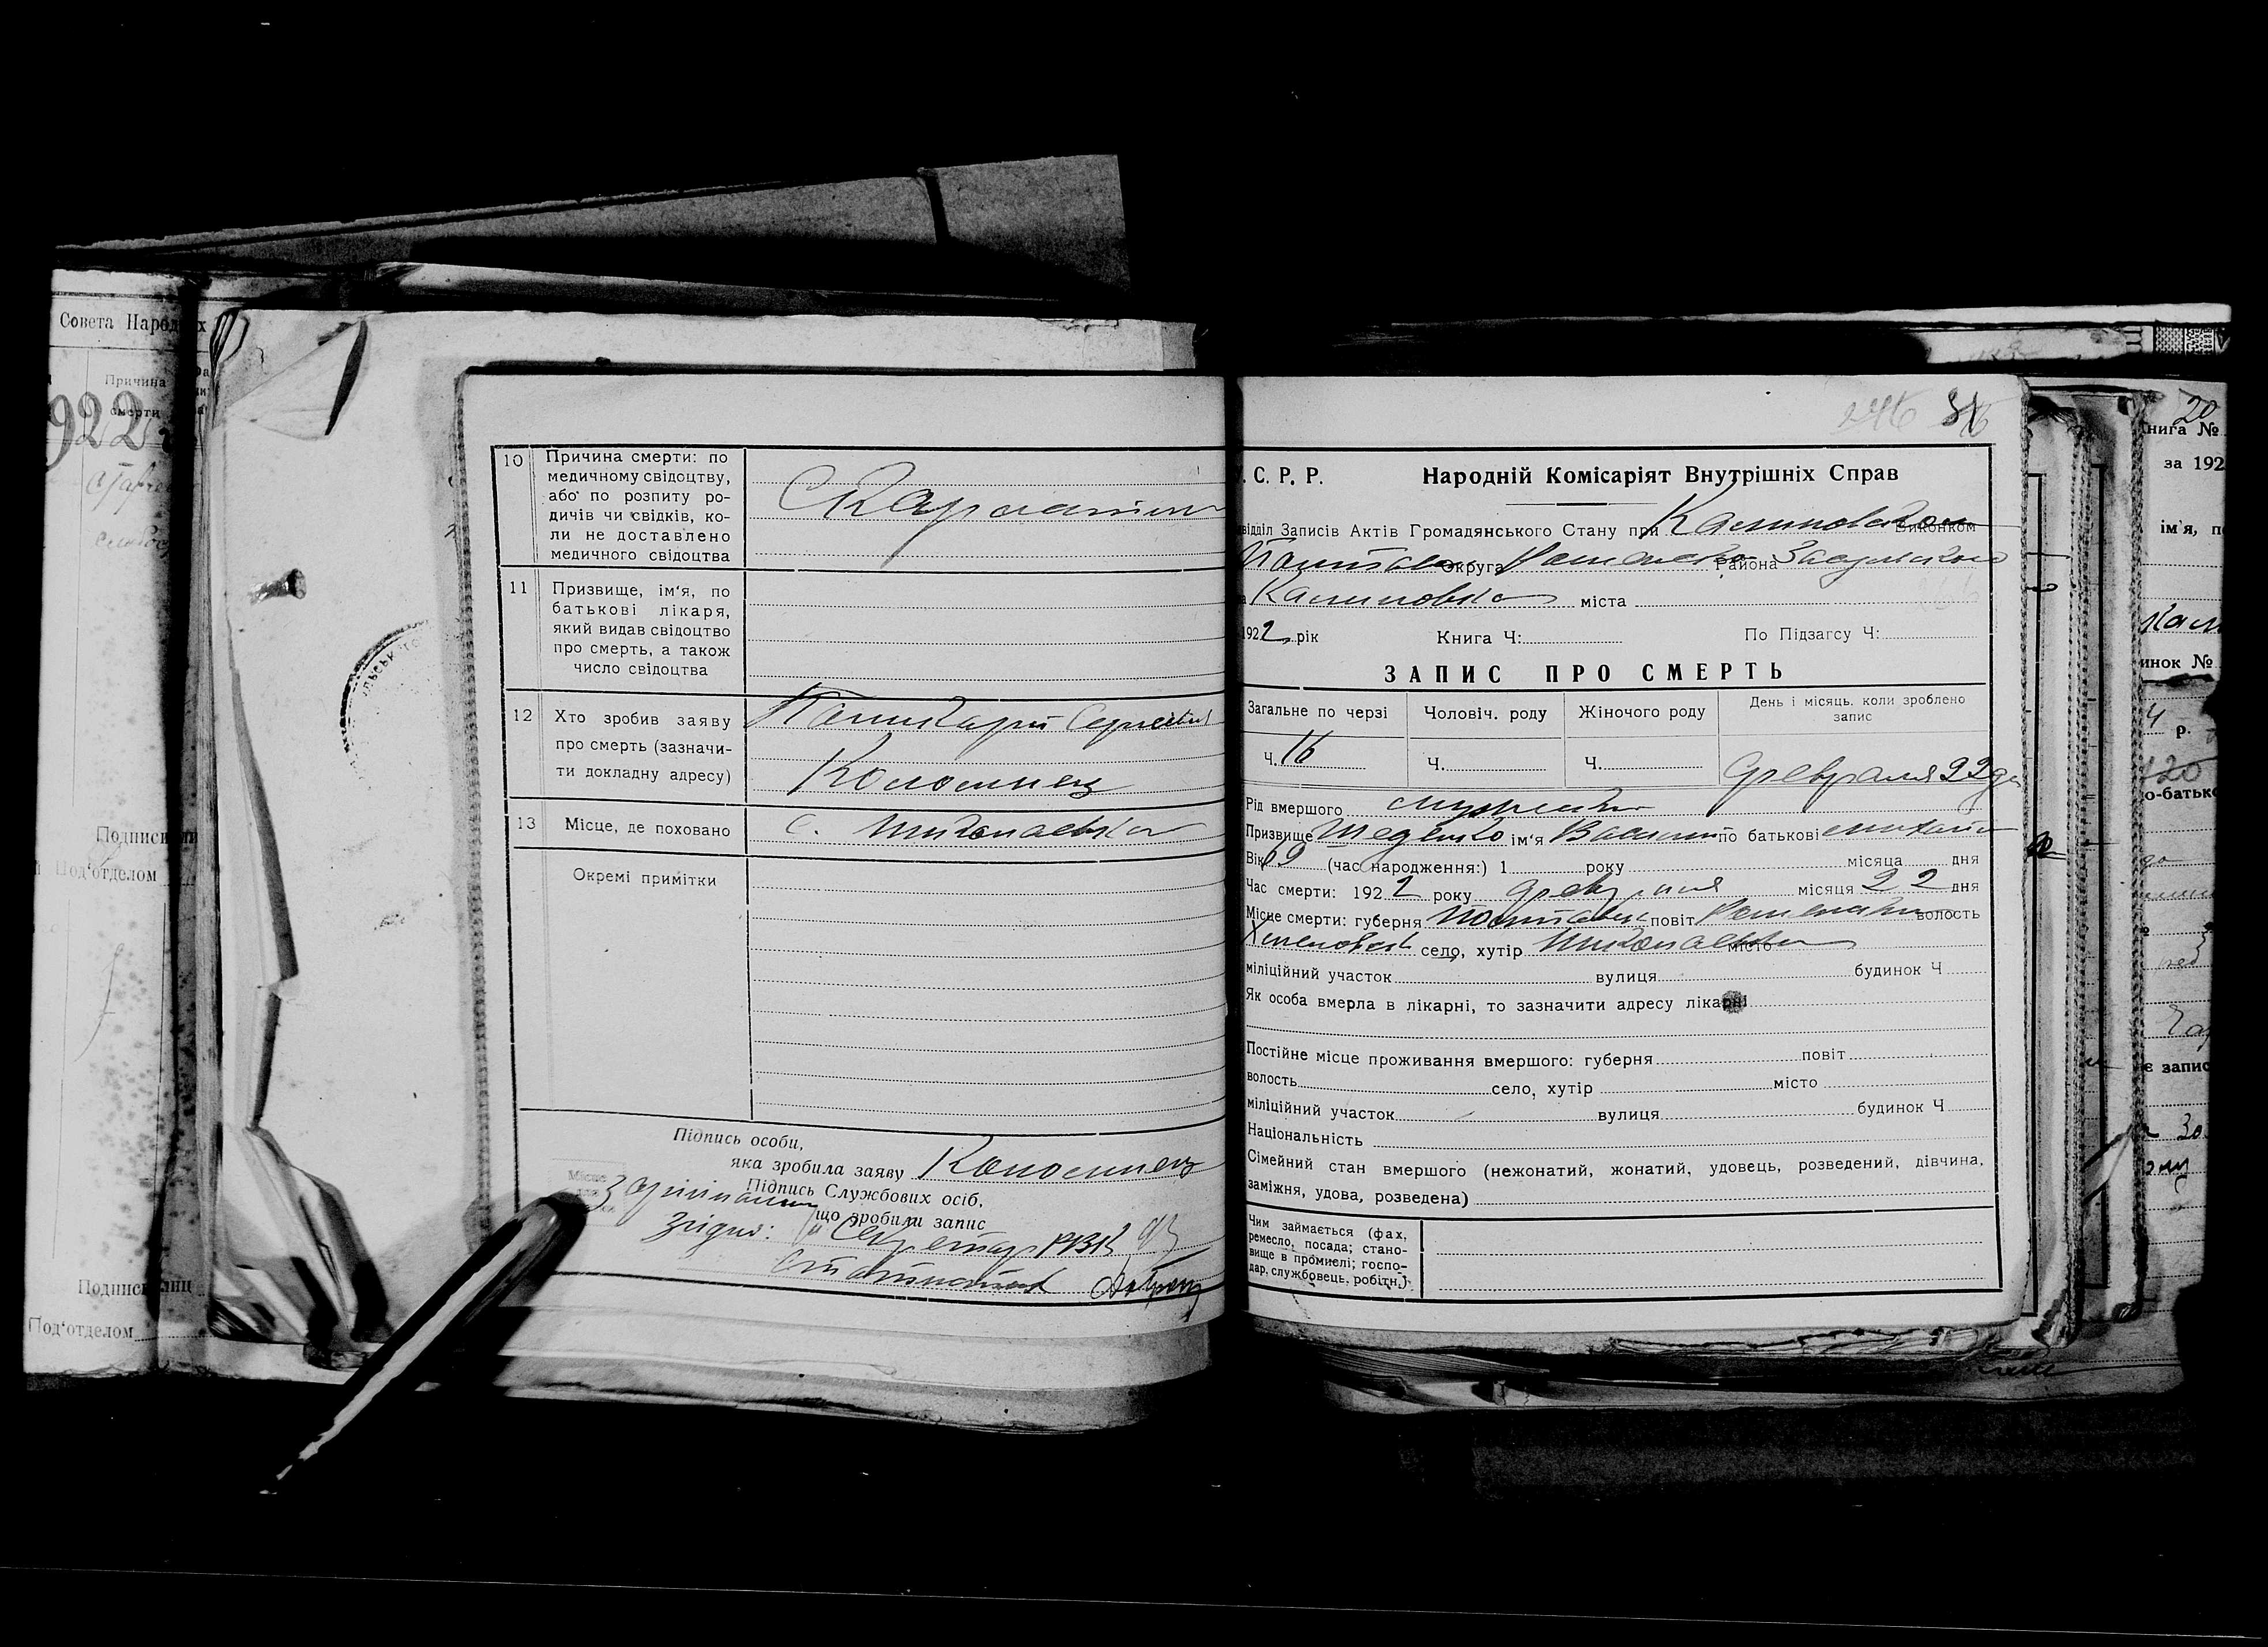 Совета Народ х
Причина
смерти
922
Подписи ли
Под'отделом
Подписи лиц
Под'отделом
10 Причина смерти: по
медичному свідоцтву,
або по розпиту ро-
дичів чи свідків, ко-
ли не доставлено
медичного свідоцтва
Скарлатин
11 Призвище, ім'я, по
батькові лікаря,
який видав свідоцтво
про смерть, а також
число свідоцтва
12 Хто зробив заяву
про смерть (зазначи-
ти докладну адресу)
Коломиец
13 Місце, де поховано с. Николаевка
Окремі примітки
Підпись особи,
яка зробила заяву Коломиец
Місце
для
Підпись Службових осіб,
що зробили запис
З оригіналом
згідно: Секретар РВК
246
С. Р. Р. Народній Комісаріят Внутрішніх Справ
відділ Записів Актів Громадянського Стану при Калиновском Виконком
Полтавск Округа Района
Калиновка міста
1922 рік Книга Ч: По Підзагсу Ч:
ЗАПИС ПРО СМЕРТЬ
Загальне по черзі Чоловіч. роду Жіночого роду День і місяць, коли зроблено
запис
Ч. 16 Ч. Ч. Февраля 22 дн
Рід вмершого мужской
Призвище Шеденко ім'я Василий по батькові Михайл
Вік 69 (час народження:) 1 року місяца дня
Час смерти: 1922 року февраля місяця 22 дня
Місце смерти: губерня Полтавск повіт волость
село, хутір Николаевка місто
міліційний участок вулиця будинок Ч
Як особа вмерла в лікарні, то зазначити адресу лікарні
Постійне місце проживання вмершого: губерня повіт
волость село, хутір місто
міліційний участок вулиця будинок Ч
Національність
Сімейний стан вмершого (нежонатий, жонатий, удовець, розведений, дівчина,
заміжня, удова, розведена)
Чим займається (фах,
ремесло, посада; стано-
вище в промислі; госпо-
дар, службовець, робітн.)
20
нига №
за 192
ім'я, п
инок №
р.
о-батько
є запис